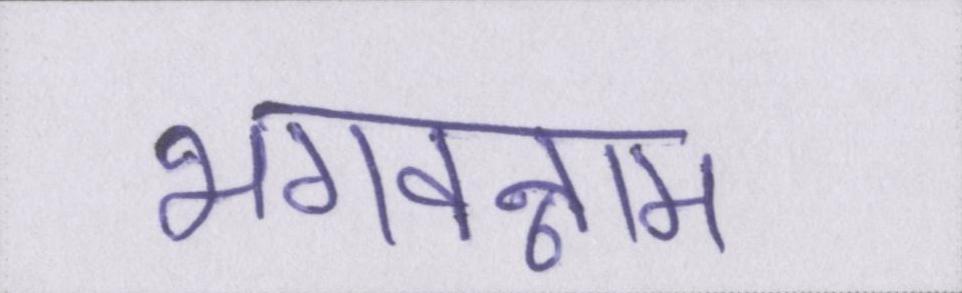 भगवन्नाम